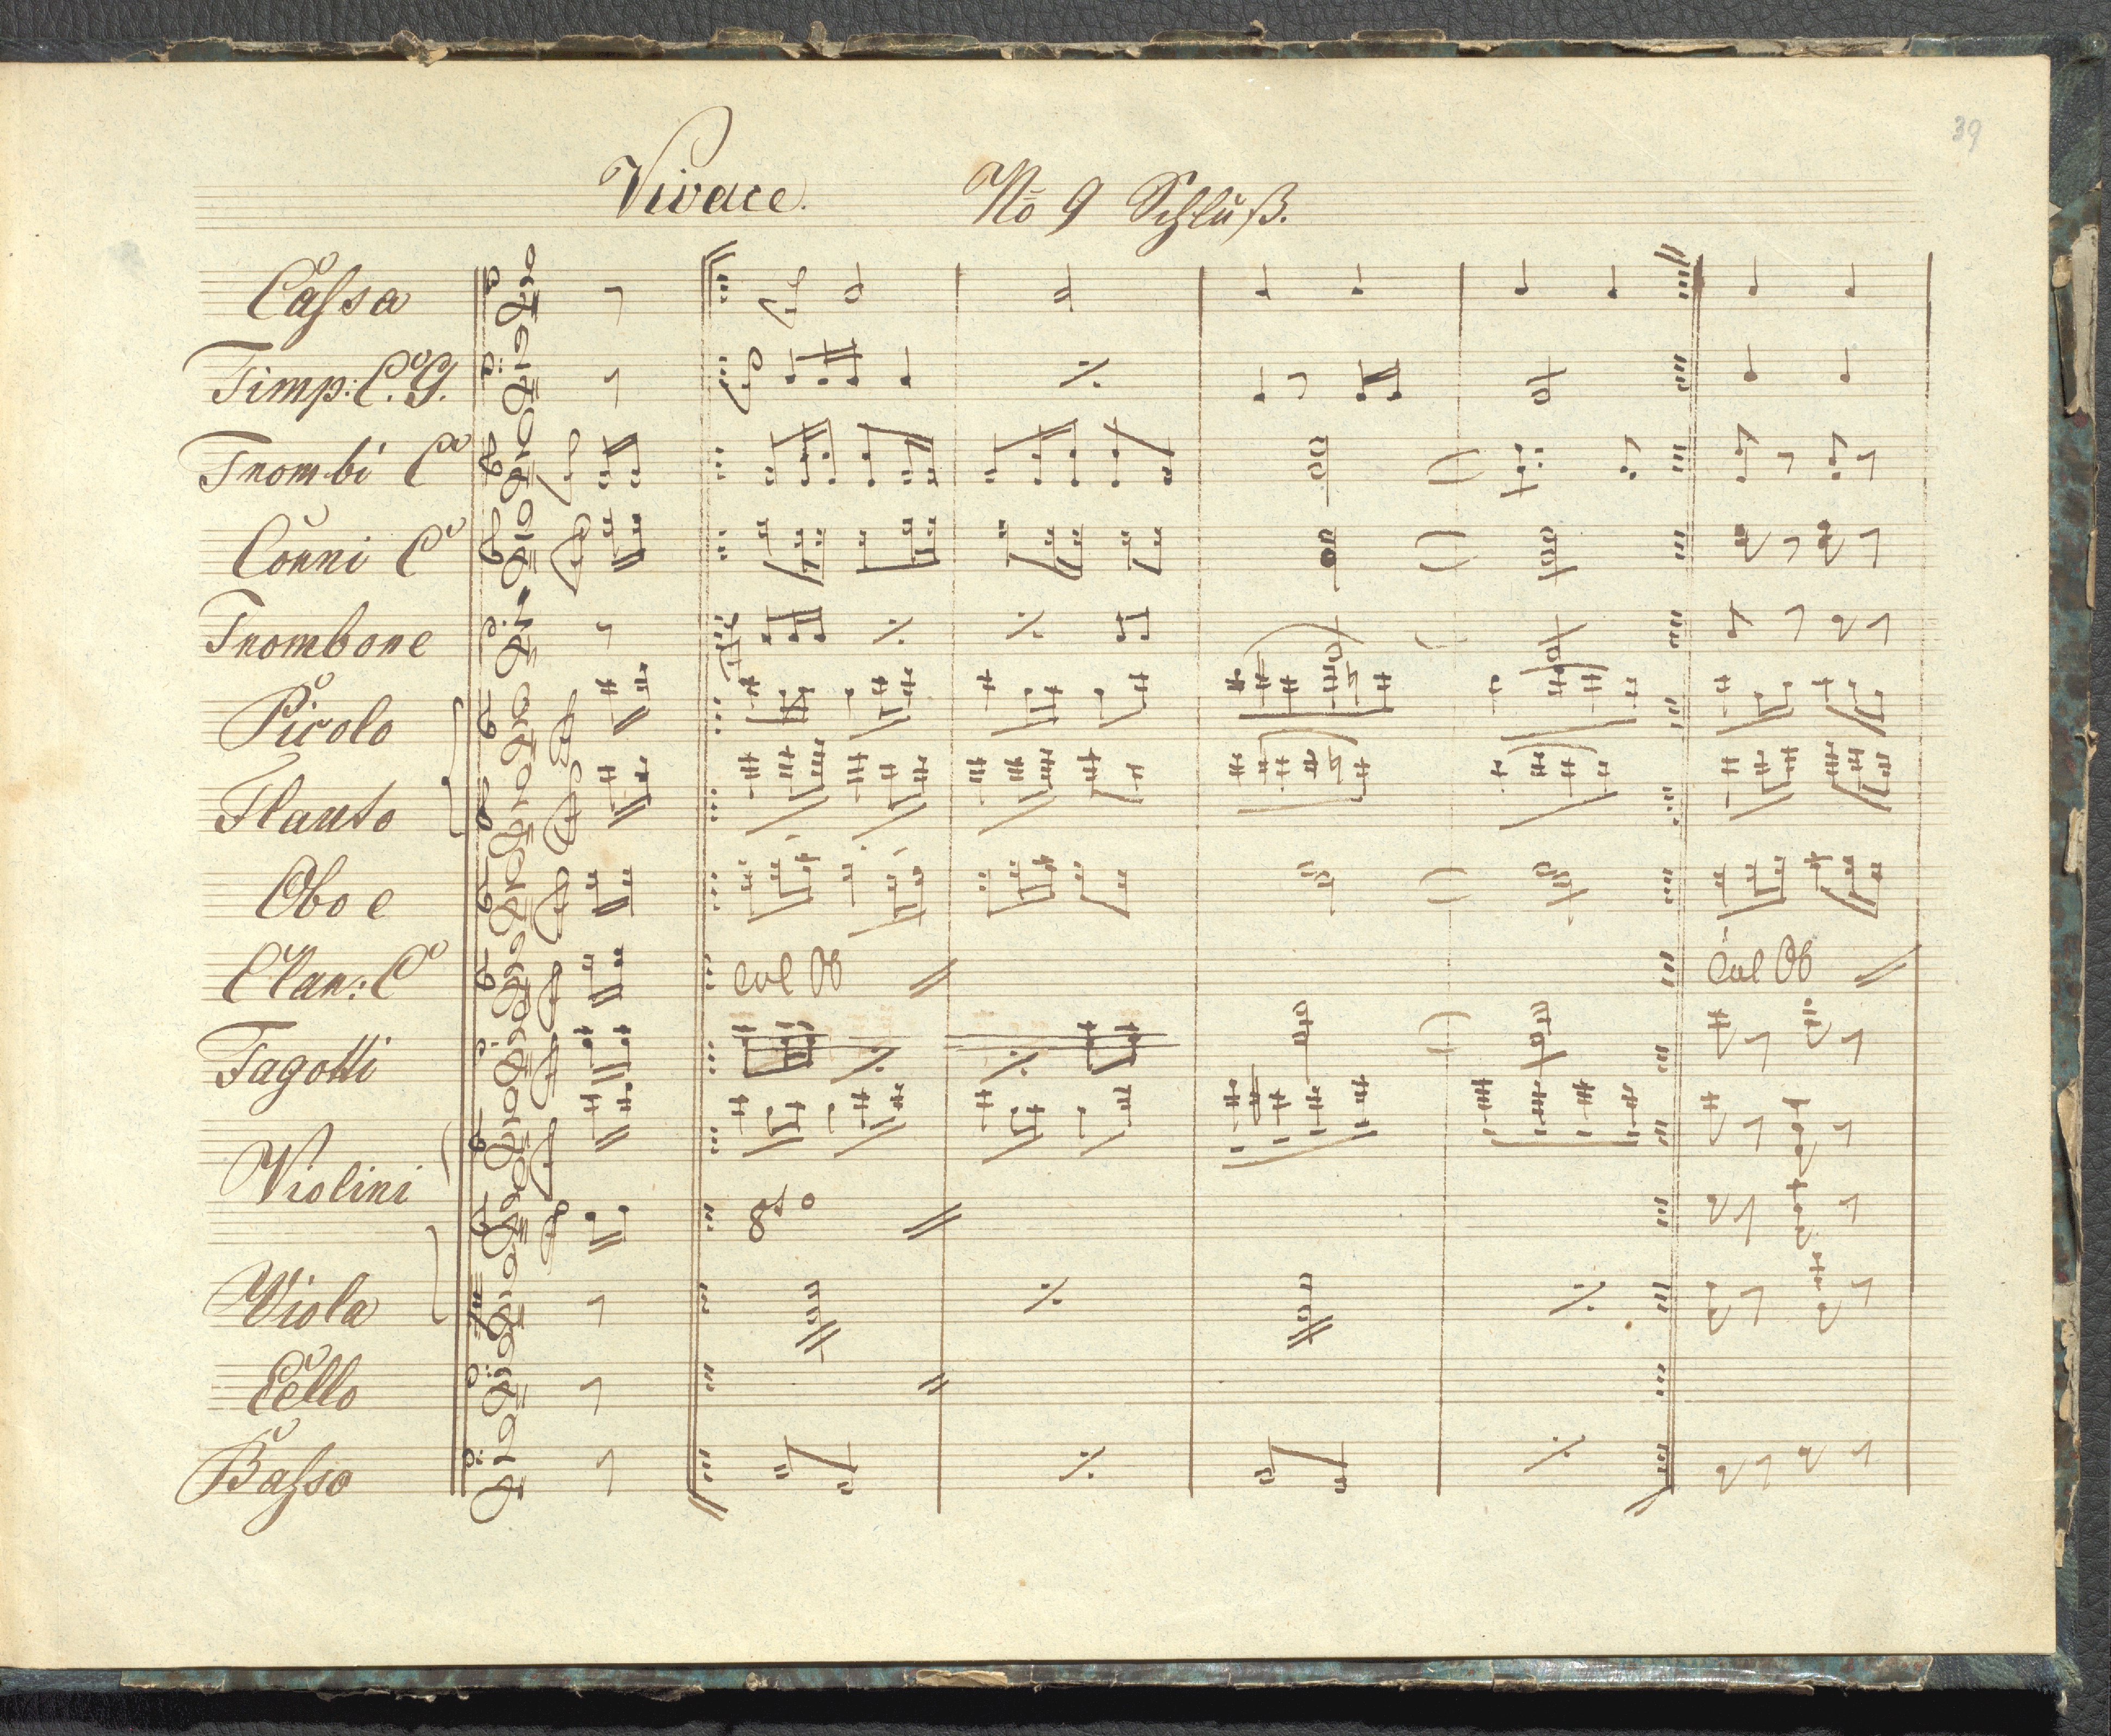 39
Vivace. No 9 Schluß.
Cassa
Timp: C. G.
Trombi C
Corni C
Trombone
Picolo
Flauto
Oboe
col Ob
Clar: C
col Ob
Fagotti
Violini
8
Viola
Cello
Basso